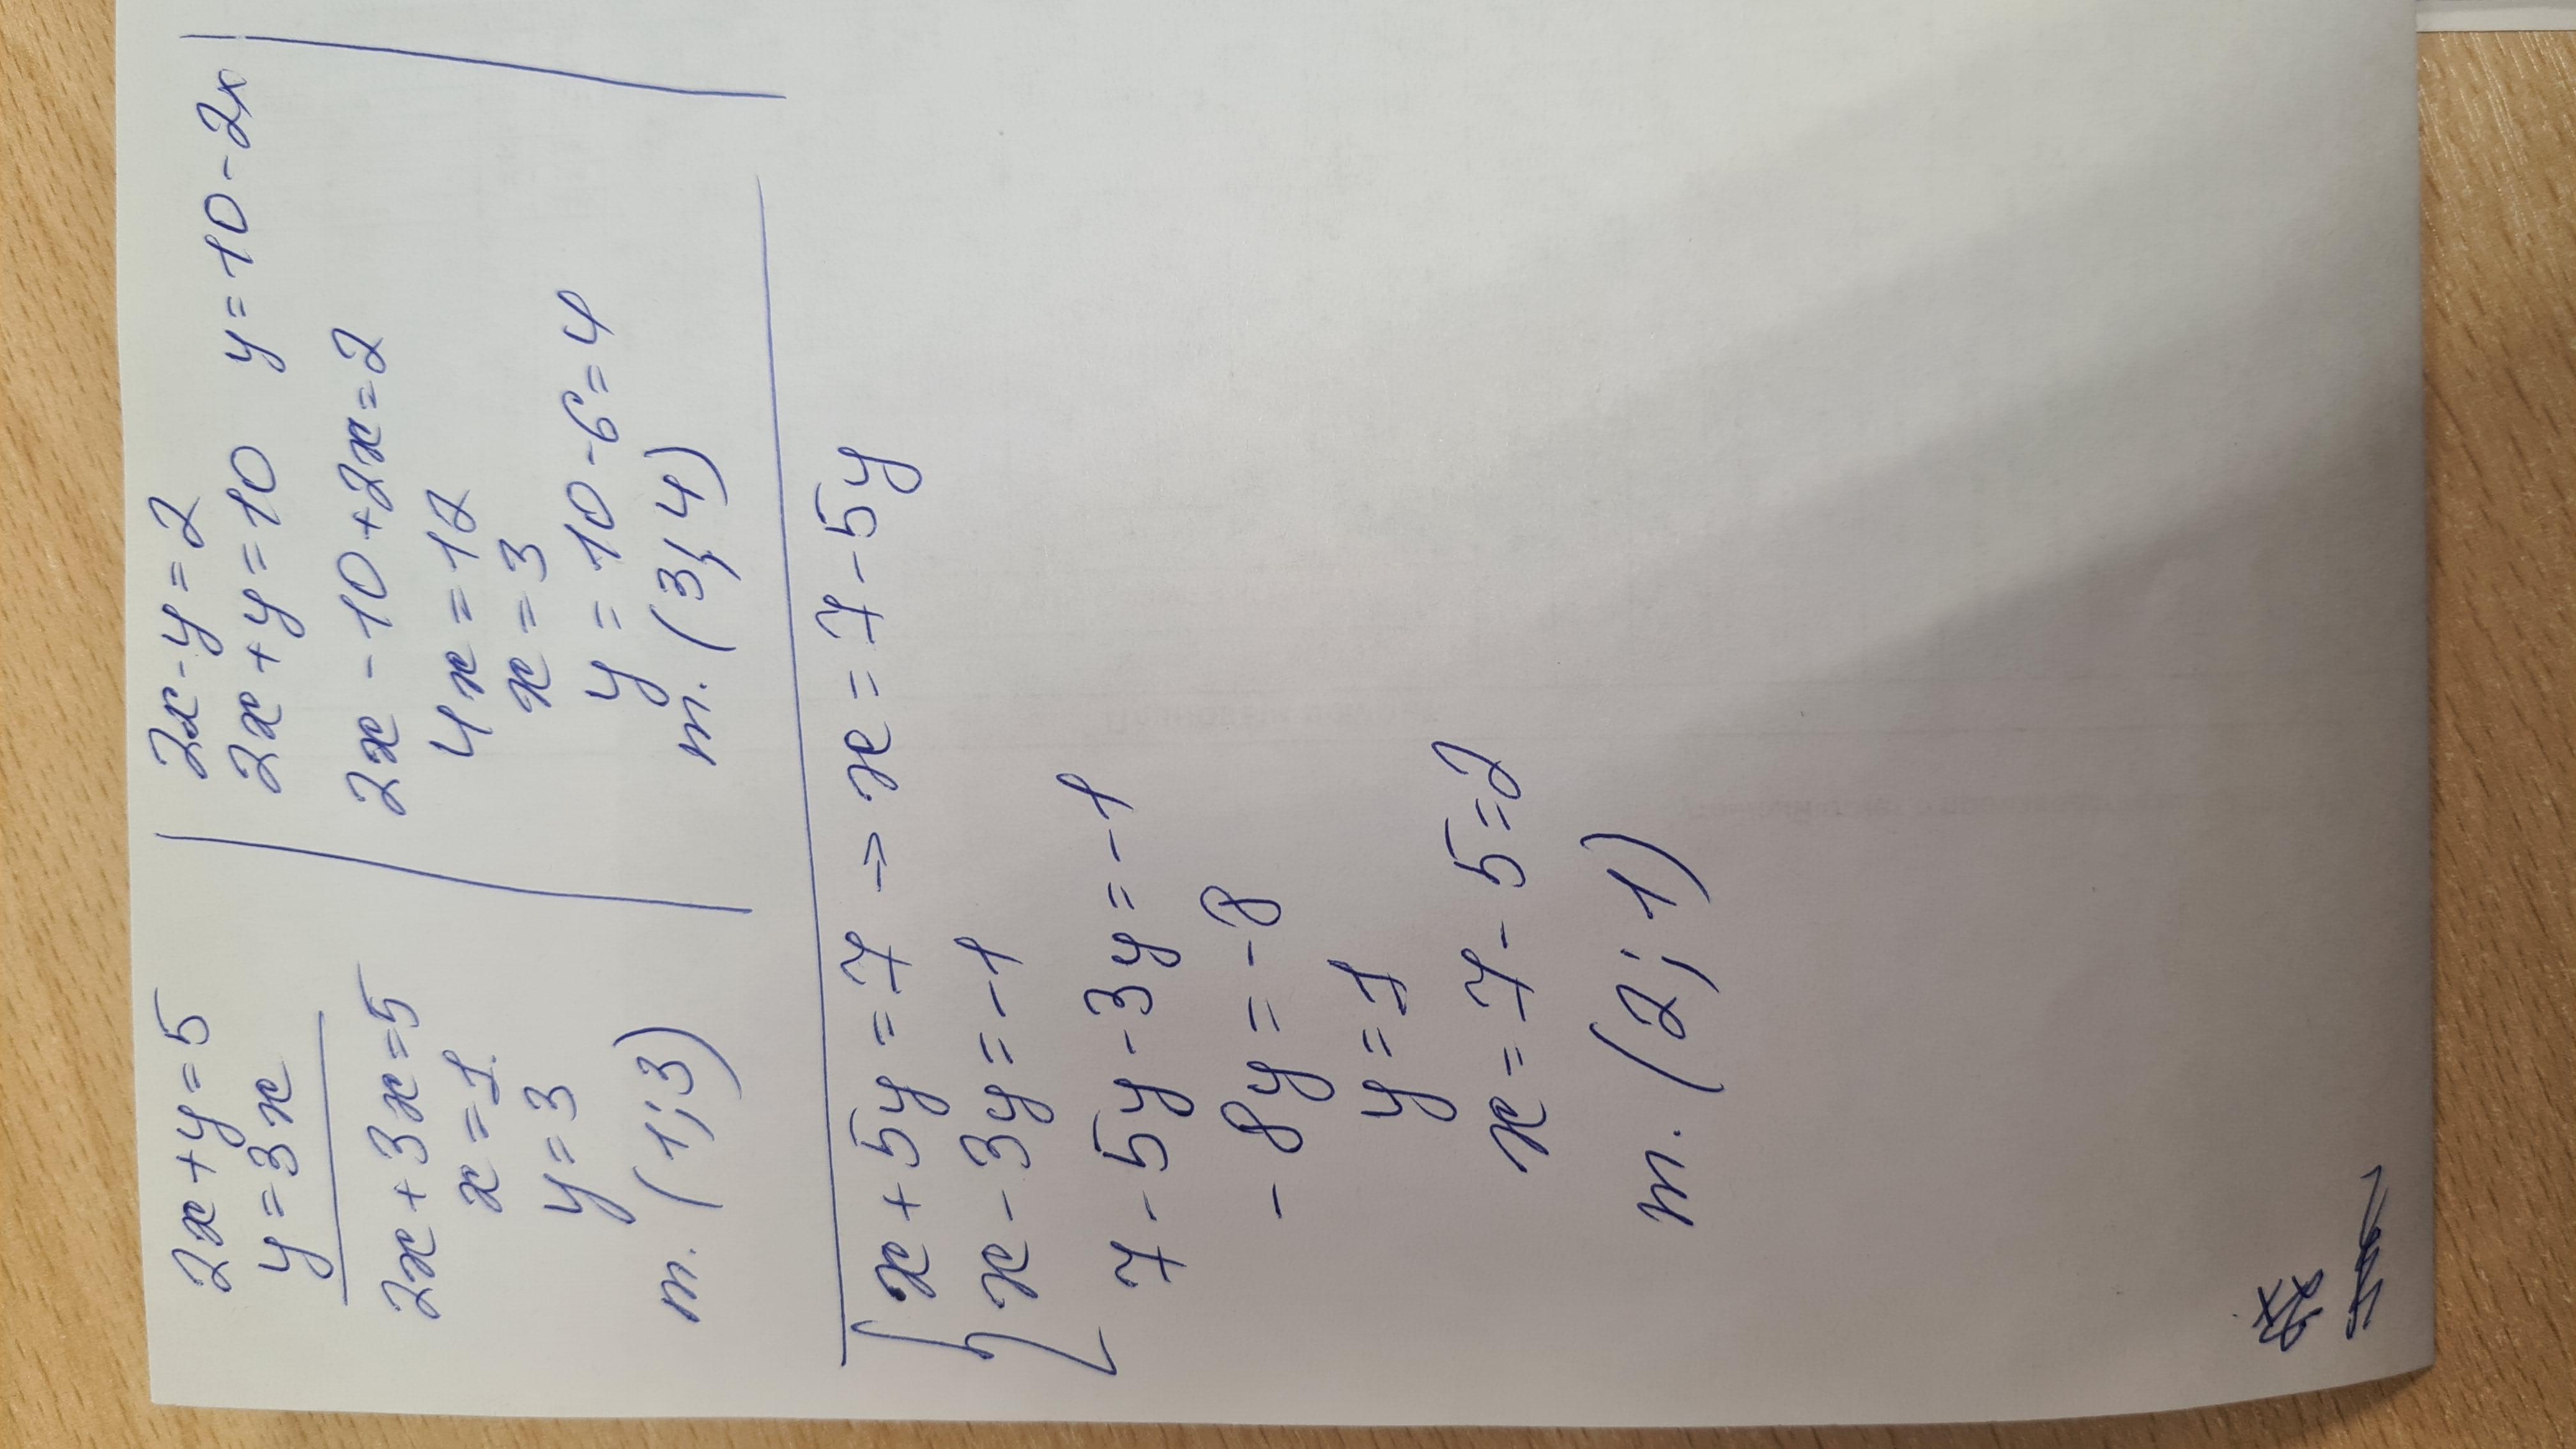 2x+y=5
y=3x
2x+3x=5
x=1.
y=3
т. (1;3)
2x-y=2
2x+y=10 y=10-2x
2x-10+2x=2
4x=12
x=3
y=10-6=4
т. (3;4)
x+5y=7 → x=7-5y
x-3y=-1
7-5y-3y=-1
-8y=-8
y=1
x=7-5=2
т. (2;1)